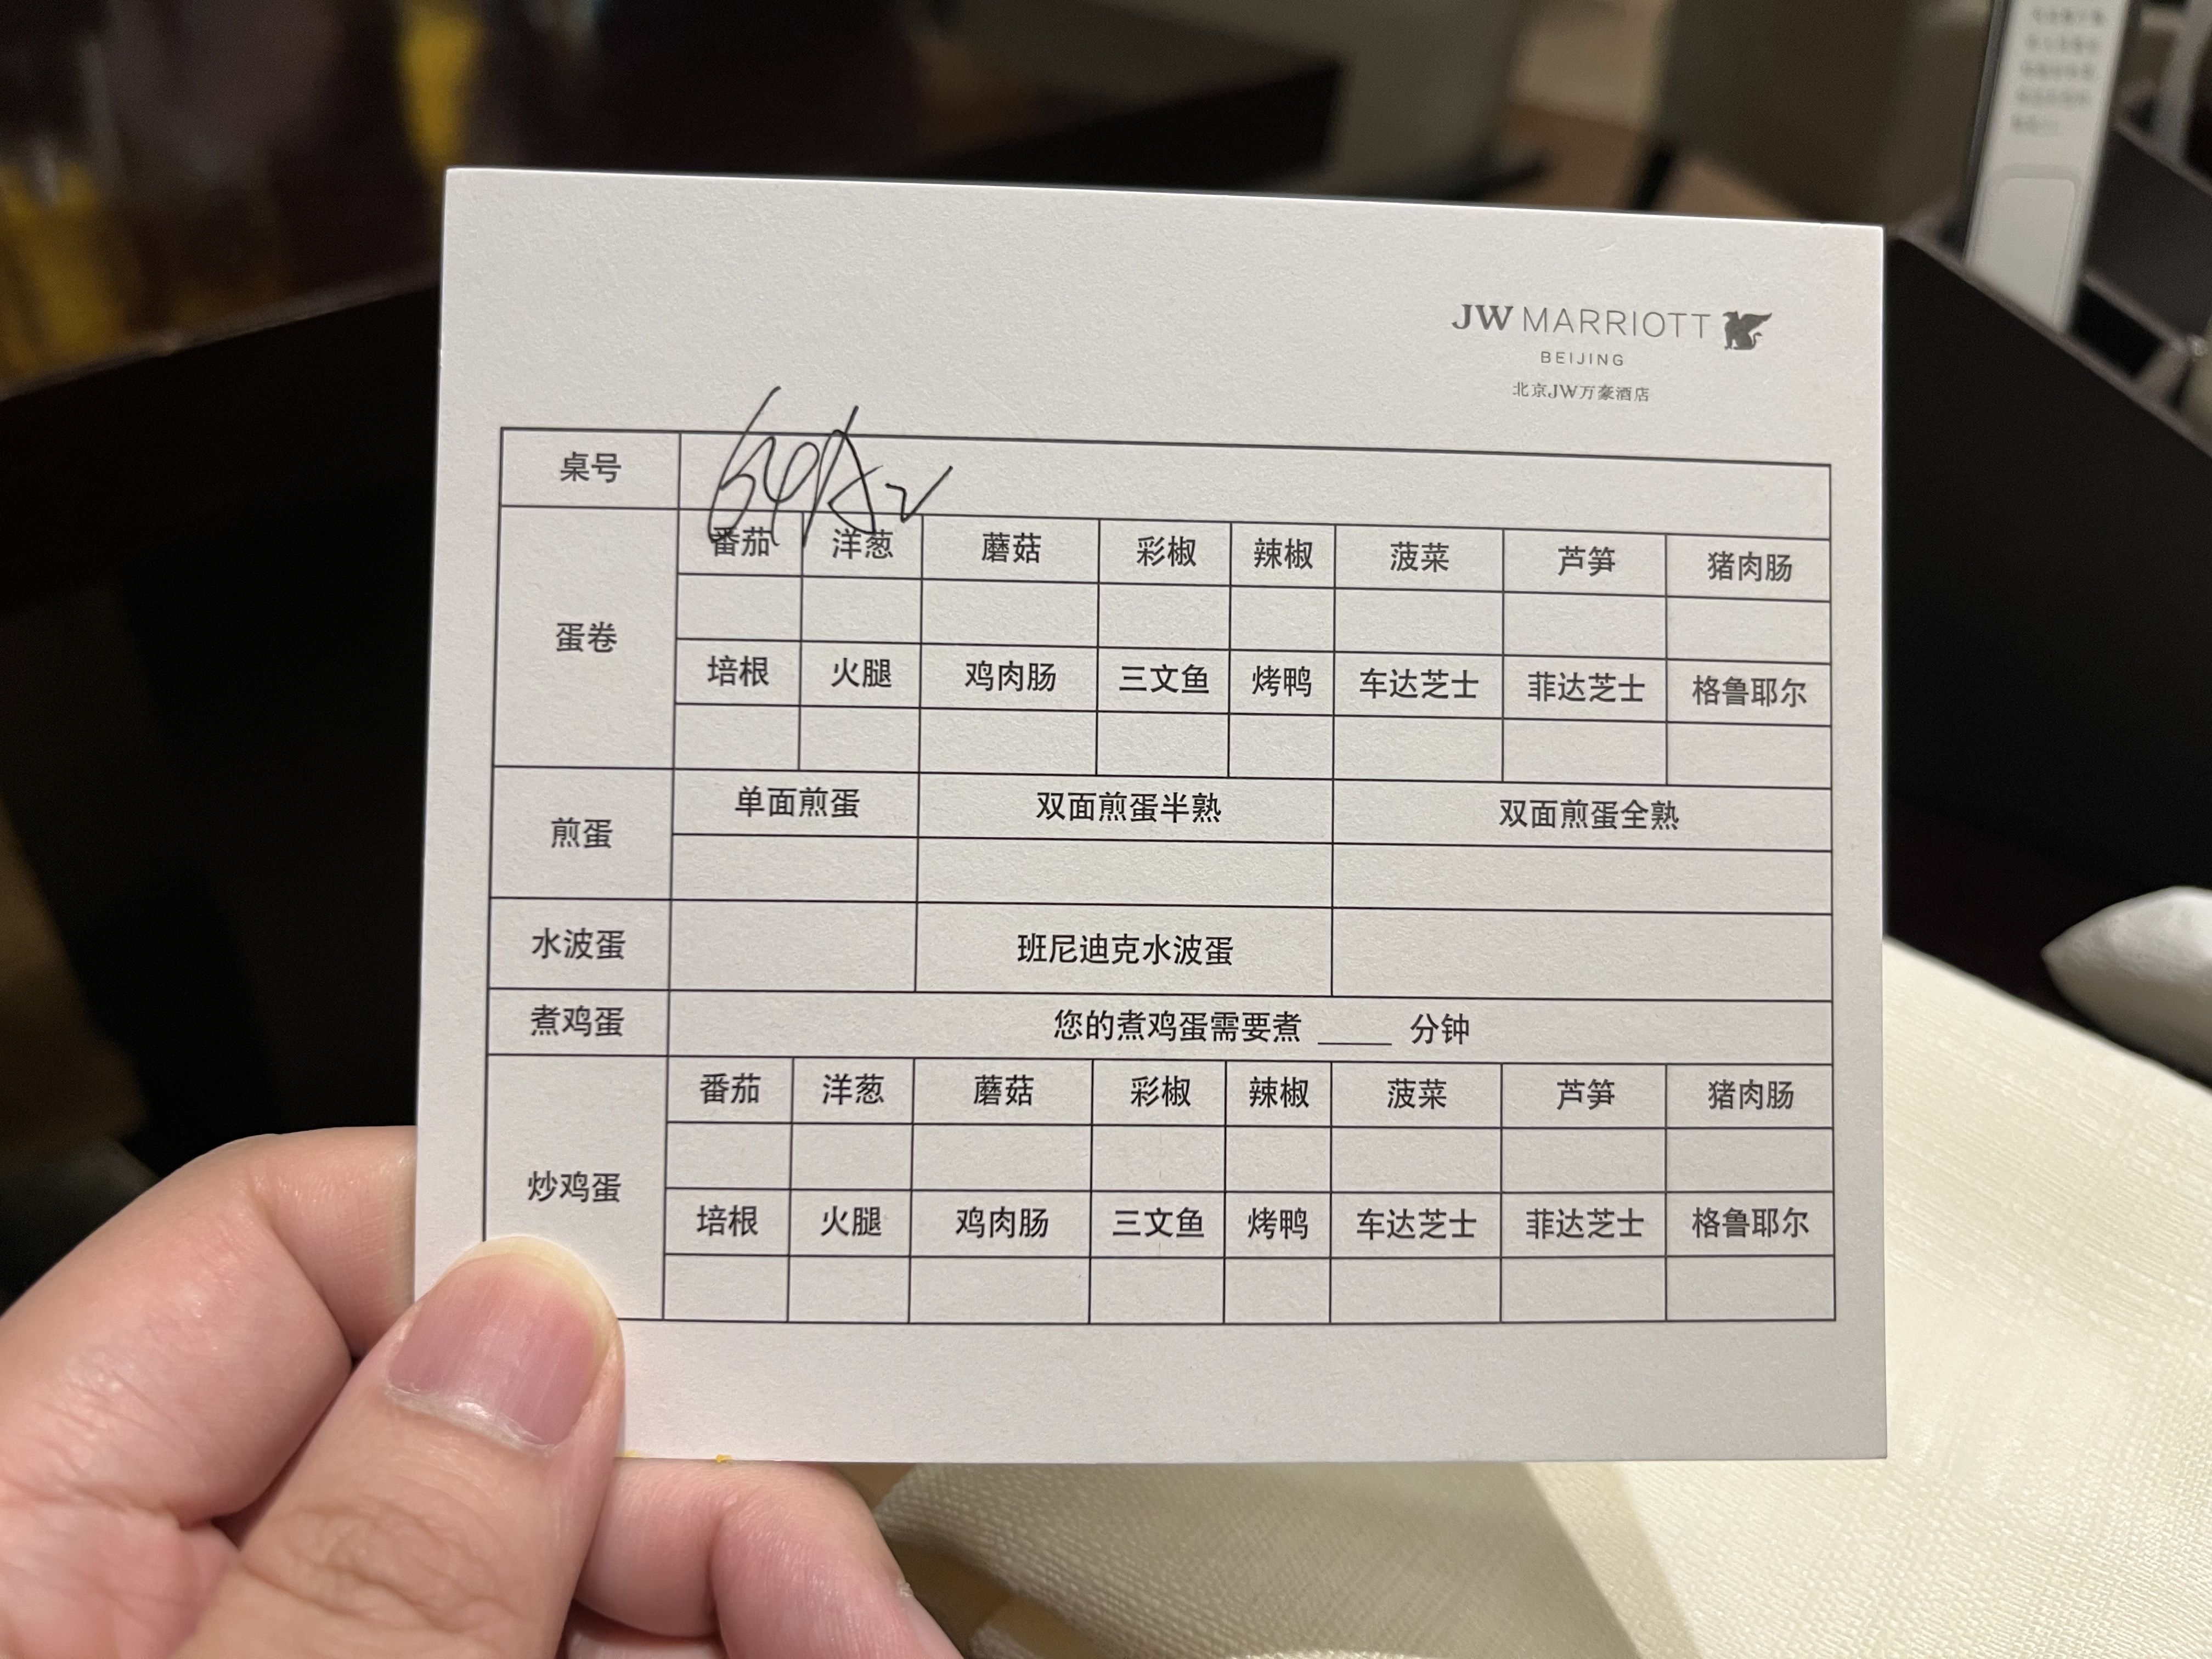 JW MARRIOTT
BEIJING
北京JW万豪酒店
桌号
番茄 洋葱 蘑菇 彩椒 辣椒 菠菜 芦笋 猪肉肠
蛋卷
培根 火腿 鸡肉肠 三文鱼 烤鸭 车达芝士 菲达芝士 格鲁耶尔
煎蛋 单面煎蛋 双面煎蛋半熟 双面煎蛋全熟
水波蛋 班尼迪克水波蛋
煮鸡蛋 您的煮鸡蛋需要煮 ____ 分钟
番茄 洋葱 蘑菇 彩椒 辣椒 菠菜 芦笋 猪肉肠
炒鸡蛋
培根 火腿 鸡肉肠 三文鱼 烤鸭 车达芝士 菲达芝士 格鲁耶尔